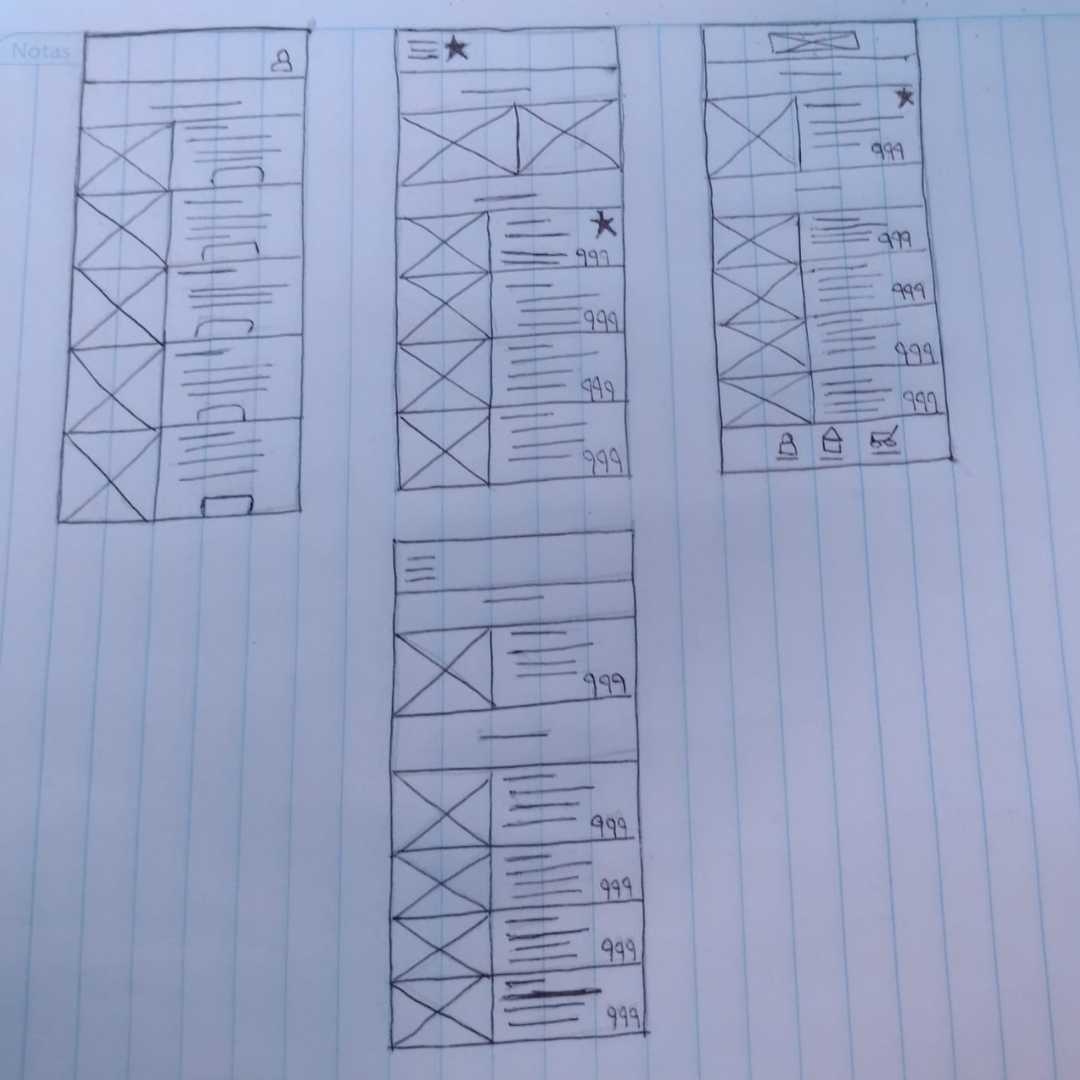 Notas
999
999
999
999
999
999
999
999
999
999
999
999
999
999